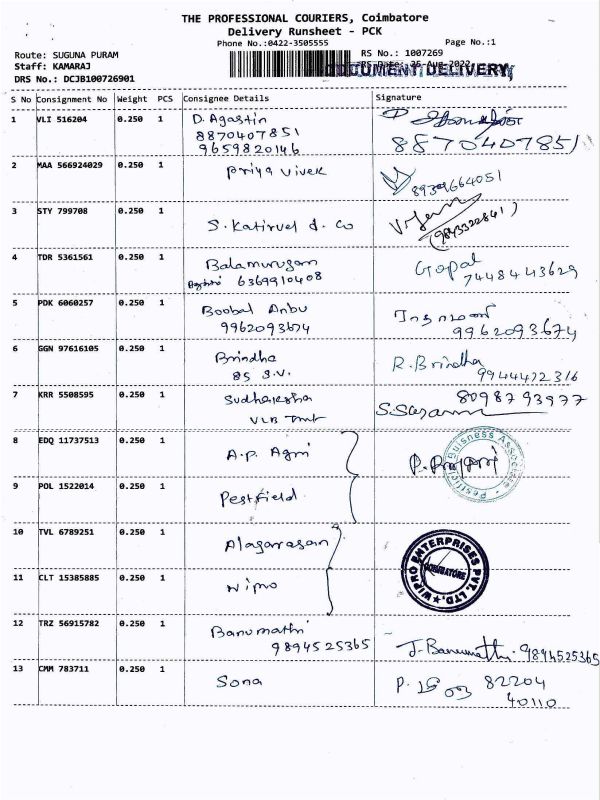 THE PROFESSIONAL COURIERS, Coimbatore
Delivery Runsheet - PCK
Phone No.:0422-3505555 Page No.:1
Route: SUGUNA PURAM RS No.: 1007269
Staff: KAMARAJ RS Date: 25-Aug-2022
DOCUMENT DELIVERY
DRS No.: DCJB100726901
S No Consignment No Weight PCS Consignee Details Signature
1 VLI 516204 0.250 1 D. Agastin
8870407851 8870407851
9659820146
2 MAA 566924029 0.250 1 Priya Vivek
3 STY 799708 0.250 1 S. Katirvel & Co (9843322841)
4 TDR 5361561 0.250 1 Balamurugan Gopal
6369910408 7448443629
5 PDK 6060257 0.250 1 Boobal Anbu
9962093674 9962093674
6 GGN 97616105 0.250 1 Brindha R. Brindha
85 S.V. 9944472316
7 KRR 5508595 0.250 1 Sudhaksha 8098793977
VLB
8 EDQ 11737513 0.250 1 A.P. Agri
9 POL 1522014 0.250 1 Pestfield
10 TVL 6789251 0.250 1 Alagarasan
11 CLT 15385885 0.250 1 Wipro
WIPRO ENTERPRISES PVT. LTD.
COIMBATORE
12 TRZ 56915782 0.250 1 Banumathi
9894525365 J. Banumathi. 9894525365
13 CMM 783711 0.250 1 Sona 82204
40110